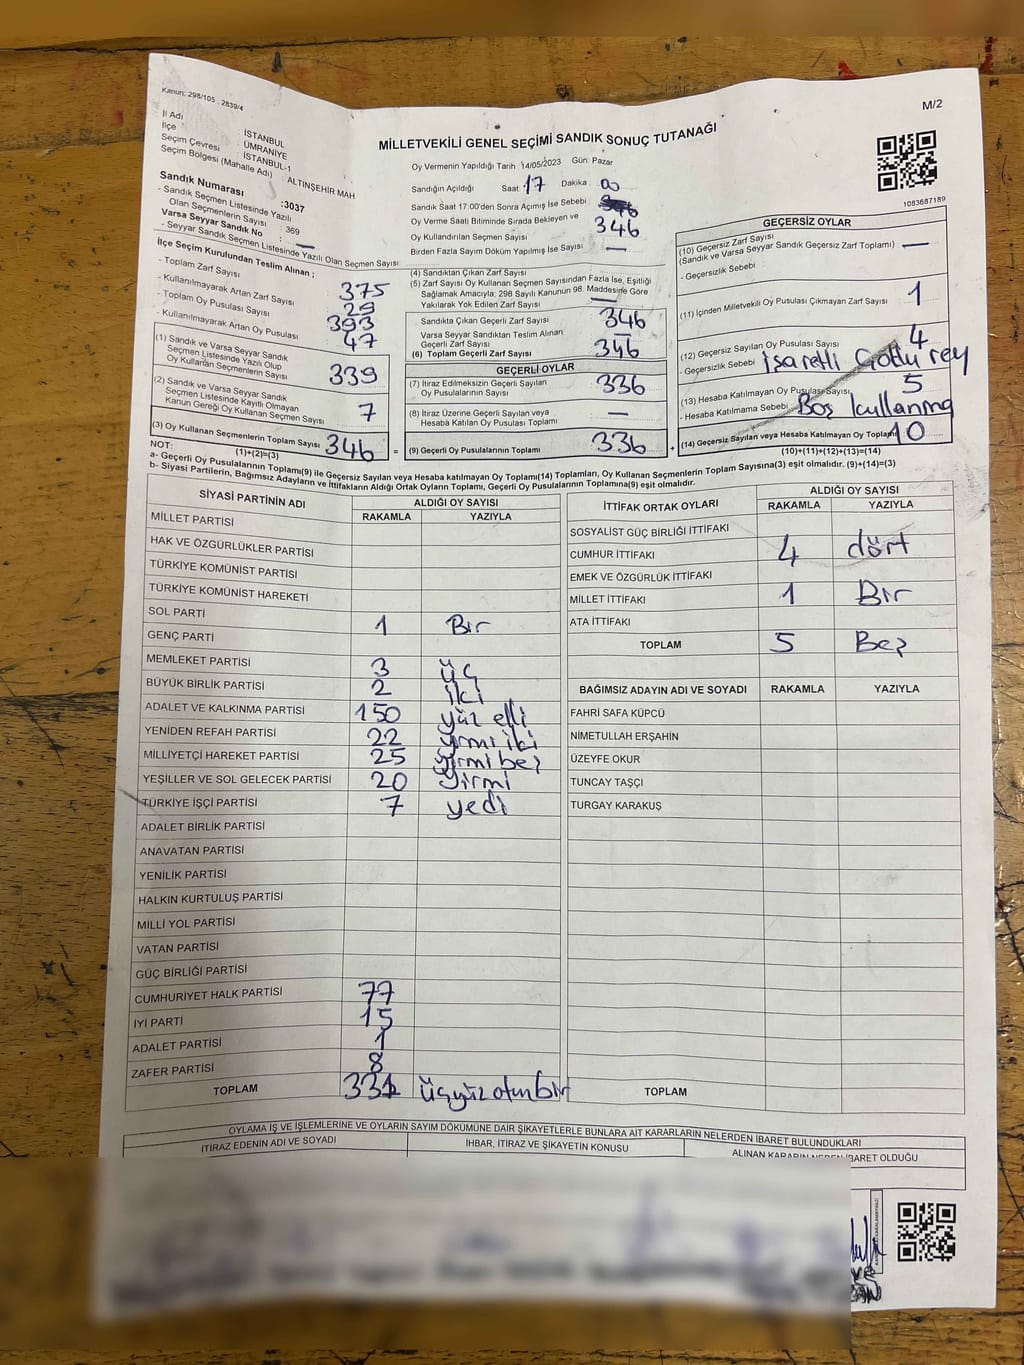 Kanun: 298/105 . 2839/4
M/2
MİLLETVEKİLİ GENEL SEÇİMİ SANDIK SONUÇ TUTANAĞI
İl Adı İSTANBUL
İlçe ÜMRANİYE
Seçim Çevresi İSTANBUL-1
Seçim Bölgesi (Mahalle Adı) : ALTINŞEHİR MAH
Sandık Numarası :3037
- Sandık Seçmen Listesinde Yazılı
Olan Seçmenlerin Sayısı : 369
Varsa Seyyar Sandık No : —
- Seyyar Sandık Seçmen Listesinde Yazılı Olan Seçmen Sayısı
İlçe Seçim Kurulundan Teslim Alınan ;
- Toplam Zarf Sayısı 375
- Kullanılmayarak Artan Zarf Sayısı 29
- Toplam Oy Pusulası Sayısı 393
- Kullanılmayarak Artan Oy Pusulası 47
(1) Sandık ve Varsa Seyyar Sandık
Seçmen Listesinde Yazılı Olup
Oy Kullanan Seçmenlerin Sayısı 339
(2) Sandık ve Varsa Seyyar Sandık
Seçmen Listesinde Kayıtlı Olmayan
Kanun Gereği Oy Kullanan Seçmen Sayısı 7
(3) Oy Kullanan Seçmenlerin Toplam Sayısı 346
(1)+(2)=(3)
Oy Vermenin Yapıldığı Tarih :14/05/2023 Gün: Pazar
Sandığın Açıldığı Saat: 17 Dakika : 00
Sandık Saat 17.00'den Sonra Açılmış İse Sebebi
Oy Verme Saati Bitiminde Sırada Bekleyen ve
Oy Kullandırılan Seçmen Sayısı 346
Birden Fazla Sayım Döküm Yapılmış İse Sayısı —
(4) Sandıktan Çıkan Zarf Sayısı
(5) Zarf Sayısı Oy Kullanan Seçmen Sayısından Fazla İse, Eşitliği
Sağlamak Amacıyla; 298 Sayılı Kanunun 98. Maddesine Göre
Yakılarak Yok Edilen Zarf Sayısı —
Sandıkta Çıkan Geçerli Zarf Sayısı 346
Varsa Seyyar Sandıktan Teslim Alınan
Geçerli Zarf Sayısı —
(6) Toplam Geçerli Zarf Sayısı 346
GEÇERLİ OYLAR
(7) İtiraz Edilmeksizin Geçerli Sayılan
Oy Pusulalarının Sayısı 336
(8) İtiraz Üzerine Geçerli Sayılan veya
Hesaba Katılan Oy Pusulası Toplamı —
= (9) Geçerli Oy Pusulalarının Toplamı 336
1083687189
GEÇERSİZ OYLAR
(10) Geçersiz Zarf Sayısı
(Sandık ve Varsa Seyyar Sandık Geçersiz Zarf Toplamı) —
- Geçersizlik Sebebi
(11) İçinden Milletvekili Oy Pusulası Çıkmayan Zarf Sayısı 1
(12) Geçersiz Sayılan Oy Pusulası Sayısı 4
- Geçersizlik Sebebi İşaretli rey
(13) Hesaba Katılmayan Oy Pusulası Sayısı 5
- Hesaba Katılmama Sebebi Boş kullanma
+ (14) Geçersiz Sayılan veya Hesaba Katılmayan Oy Toplamı 10
(10)+(11)+(12)+(13)=(14)
NOT:
a- Geçerli Oy Pusulalarının Toplamı(9) ile Geçersiz Sayılan veya Hesaba Katılmayan Oy Toplamı(14) Toplamları, Oy Kullanan Seçmenlerin Toplam Sayısına(3) eşit olmalıdır. (9)+(14)=(3)
b- Siyasi Partilerin, Bağımsız Adayların ve İttifakların Aldığı Ortak Oyların Toplamı, Geçerli Oy Pusulalarının Toplamına(9) eşit olmalıdır.
SİYASİ PARTİNİN ADI ALDIĞI OY SAYISI
RAKAMLA YAZIYLA
MİLLET PARTİSİ
HAK VE ÖZGÜRLÜKLER PARTİSİ
TÜRKİYE KOMÜNİST PARTİSİ
TÜRKİYE KOMÜNİST HAREKETİ
SOL PARTİ 1 Bir
GENÇ PARTİ
MEMLEKET PARTİSİ 3 üç
BÜYÜK BİRLİK PARTİSİ 2 iki
ADALET VE KALKINMA PARTİSİ 150 yüz elli
YENİDEN REFAH PARTİSİ 22 yirmi iki
MİLLİYETÇİ HAREKET PARTİSİ 25 yirmi beş
YEŞİLLER VE SOL GELECEK PARTİSİ 20 yirmi
TÜRKİYE İŞÇİ PARTİSİ 7 yedi
ADALET BİRLİK PARTİSİ
ANAVATAN PARTİSİ
YENİLİK PARTİSİ
HALKIN KURTULUŞ PARTİSİ
MİLLİ YOL PARTİSİ
VATAN PARTİSİ
GÜÇ BİRLİĞİ PARTİSİ
CUMHURİYET HALK PARTİSİ 77
İYİ PARTİ 15
ADALET PARTİSİ 1
ZAFER PARTİSİ 8
TOPLAM 331 üçyüz otuz bir
İTTİFAK ORTAK OYLARI ALDIĞI OY SAYISI
RAKAMLA YAZIYLA
SOSYALİST GÜÇ BİRLİĞİ İTTİFAKI
CUMHUR İTTİFAKI 4 dört
EMEK VE ÖZGÜRLÜK İTTİFAKI
MİLLET İTTİFAKI 1 Bir
ATA İTTİFAKI
TOPLAM 5 Beş
BAĞIMSIZ ADAYIN ADI VE SOYADI RAKAMLA YAZIYLA
FAHRİ SAFA KÜPCÜ
NİMETULLAH ERŞAHİN
ÜZEYFE OKUR
TUNCAY TAŞÇI
TURGAY KARAKUŞ
TOPLAM
OYLAMA İŞ VE İŞLEMLERİNE VE OYLARIN SAYIM DÖKÜMÜNE DAİR ŞİKAYETLERLE BUNLARA AİT KARARLARIN NELERDEN İBARET BULUNDUKLARI
İTİRAZ EDENİN ADI VE SOYADI İHBAR, İTİRAZ VE ŞİKAYETİN KONUSU ALINAN KARARIN NEDEN İBARET OLDUĞU